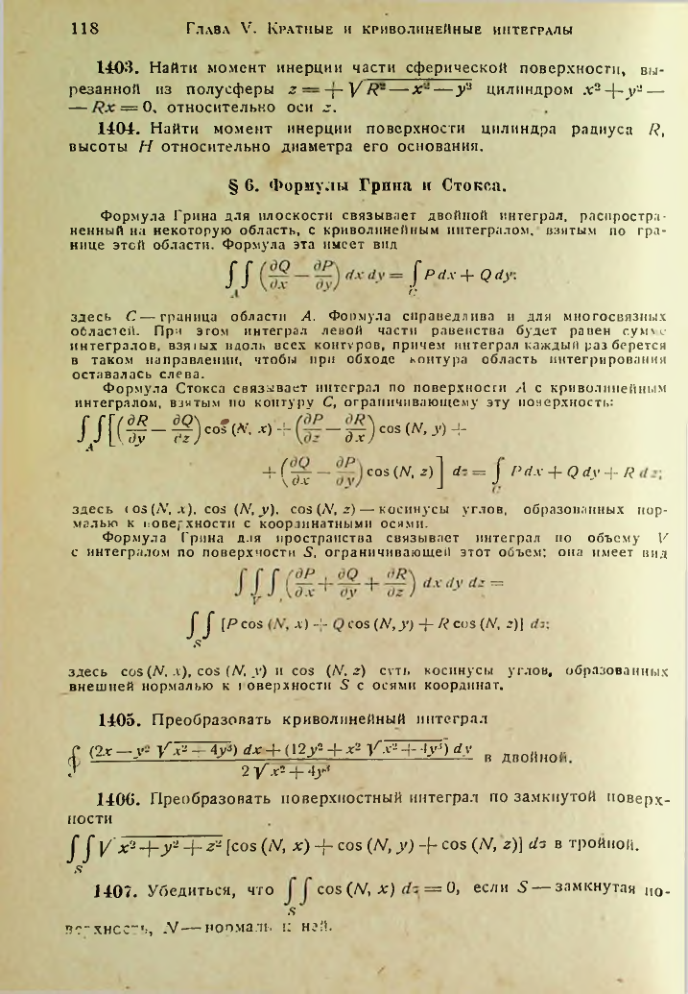 118 Глава V. Кратные и криволинейные интегралы
1403. Найти момент инерции части сферической поверхности, вы-
резанной из полусферы z = + √(R² — x² — y²) цилиндром x² + y² —
— Rx = 0, относительно оси z.
1404. Найти момент инерции поверхности цилиндра радиуса R,
высоты H относительно диаметра его основания.
§ 6. Формулы Грина и Стокса.
Формула Грина для плоскости связывает двойной интеграл, распростра-
ненный на некоторую область, с криволинейным интегралом, взятым по гра-
нице этой области. Формула эта имеет вид
∫∫_A (∂Q/∂x — ∂P/∂y) dx dy = ∫_C P dx + Q dy;
здесь C — граница области A. Формула справедлива и для многосвязных
областей. При этом интеграл левой части равенства будет равен сумме
интегралов, взятых вдоль всех контуров, причем интеграл каждый раз берется
в таком направлении, чтобы при обходе контура область интегрирования
оставалась слева.
Формула Стокса связывает интеграл по поверхности A с криволинейным
интегралом, взятым по контуру C, ограничивающему эту поверхность:
∫∫_A [(∂R/∂y — ∂Q/∂z) cos (N, x) + (∂P/∂z — ∂R/∂x) cos (N, y) +
+ (∂Q/∂x — ∂P/∂y) cos (N, z)] dσ = ∫_C P dx + Q dy + R dz;
здесь cos (N, x), cos (N, y), cos (N, z) — косинусы углов, образованных нор-
малью к поверхности с координатными осями.
Формула Грина для пространства связывает интеграл по объему V
с интегралом по поверхности S, ограничивающей этот объем; она имеет вид
∫∫∫_V (∂P/∂x + ∂Q/∂y + ∂R/∂z) dx dy dz =
∫∫_S [P cos (N, x) + Q cos (N, y) + R cos (N, z)] dσ;
здесь cos (N, x), cos (N, y) и cos (N, z) суть косинусы углов, образованных
внешней нормалью к поверхности S с осями координат.
1405. Преобразовать криволинейный интеграл
∮ ((2x — y² √(x² + 4y³) dx + (12y² + x² √(x² + 4y³) dy) / (2 √(x² + 4y³)) в двойной.
1406. Преобразовать поверхностный интеграл по замкнутой поверх-
ности
∫∫_S √(x² + y² + z²) [cos (N, x) + cos (N, y) + cos (N, z)] dσ в тройной.
1407. Убедиться, что ∫∫_S cos (N, x) dσ = 0, если S — замкнутая по-
верхность, N — нормаль к ней.